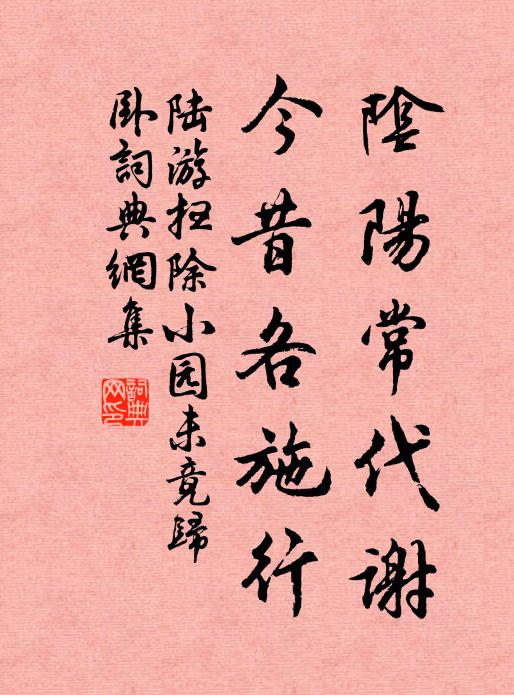 陰陽常代謝
今昔各施行
陆游扫除小园未竟歸
卧詞典網集
詞典網印